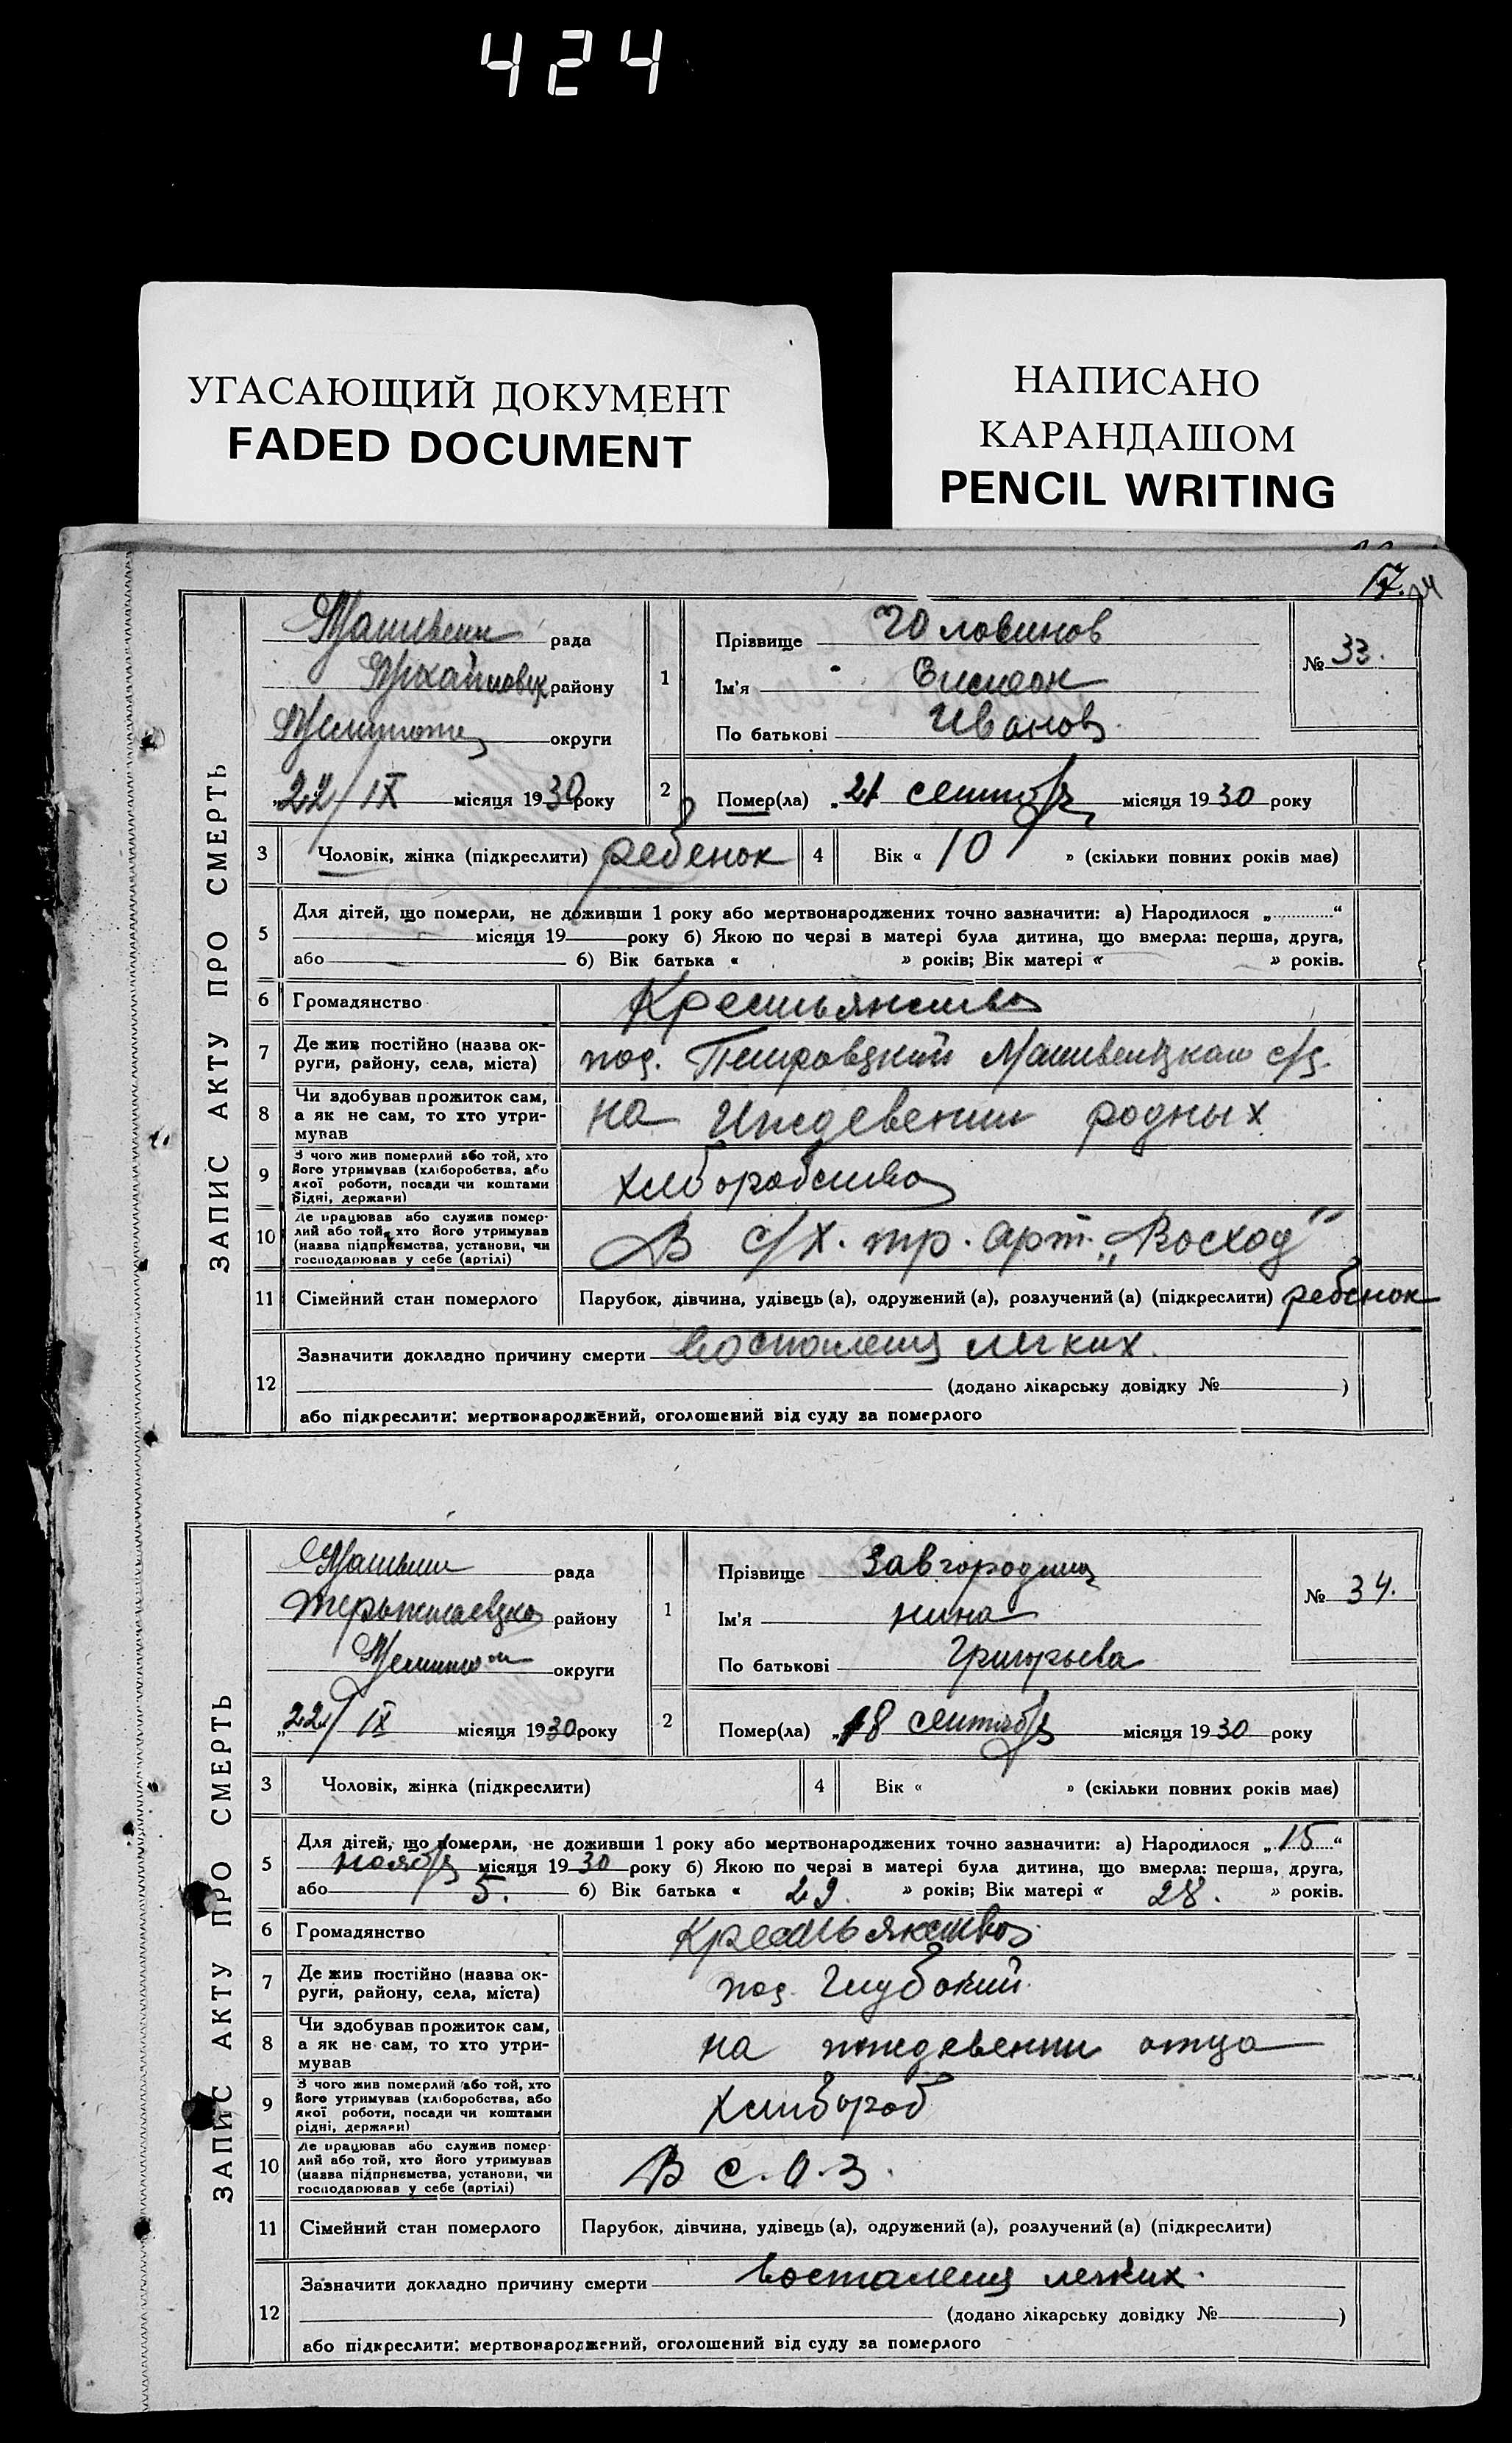 424
УГАСАЮЩИЙ ДОКУМЕНТ
FADED DOCUMENT
НАПИСАНО
КАРАНДАШОМ
PENCIL WRITING
17.
ЗАПИС АКТУ ПРО СМЕРТЬ
рада
району
округи
„22/IX місяця 1930 року
1
Прізвище Головинов
Ім'я
По батькові Иванов
№ 33.
2
Помер(ла) „21 сентябр місяця 1930 року
3
Чоловік, жінка (підкреслити) ребенок
4
Вік « 10 » (скільки повних років має)
5
Для дітей, що померли, не доживши 1 року або мертвонароджених точно зазначити: а) Народилося „ “
місяця 19 року б) Якою по черзі в матері була дитина, що вмерла: перша, друга,
або б) Вік батька « » років; Вік матері « » років.
6
Громадянство Крестьянства
7
Де жив постійно (назва ок-
руги, району, села, міста)
пос. с/с.
8
Чи здобував прожиток сам,
а як не сам, то хто утри-
мував
на иждевении родных
9
З чого жив померлий або той, хто
його утримував (хліборобства, або
якої роботи, посади чи коштами
рідні, держави)
10
Де працював або служив помер-
лий або той, хто його утримував
(назва підприємства, установи, чи
господарював у себе (артілі)
В с/х. тр. арт. „Восход“
11
Сімейний стан померлого
Парубок, дівчина, удівець (а), одружений (а), розлучений (а) (підкреслити) ребенок
12
Зазначити докладно причину смерти воспаления легких.
(додано лікарську довідку № )
або підкреслити: мертвонароджений, оголошений від суду за померлого
ЗАПИС АКТУ ПРО СМЕРТЬ
рада
району
округи
„22/IX місяця 1930 року
1
Прізвище Завгородня
Ім'я нина
По батькові Григорьева
№ 34.
2
Помер(ла) „18 сентябр місяця 1930 року
3
Чоловік, жінка (підкреслити)
4
Вік « » (скільки повних років має)
5
Для дітей, що померли, не доживши 1 року або мертвонароджених точно зазначити: а) Народилося „15“
ноябр місяця 1930 року б) Якою по черзі в матері була дитина, що вмерла: перша, друга,
або 5. б) Вік батька « 29. » років; Вік матері « 28. » років.
6
Громадянство Крестьянства
7
Де жив постійно (назва ок-
руги, району, села, міста)
пос. Глубокий.
8
Чи здобував прожиток сам,
а як не сам, то хто утри-
мував
на иждевении отца
9
З чого жив померлий або той, хто
його утримував (хліборобства, або
якої роботи, посади чи коштами
рідні, держави)
хлибороб
10
Де працював або служив помер-
лий або той, хто його утримував
(назва підприємства, установи, чи
господарював у себе (артілі)
В С.О.З.
11
Сімейний стан померлого
Парубок, дівчина, удівець (а), одружений (а), розлучений (а) (підкреслити)
12
Зазначити докладно причину смерти восталения легких.
(додано лікарську довідку № )
або підкреслити: мертвонароджений, оголошений від суду за померлого